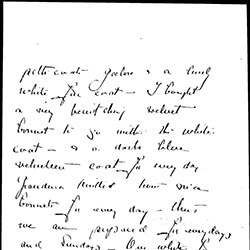 petti coats galore & a lovely
white fur coat - I bought
a very bewitching velvet
bonnet to go with the white
coat - & a dark blue
velveteen coat for every day
Grandma knitted two nice
bonnets for every day - thus
we are prepared for everydays
and Sundays - Our white